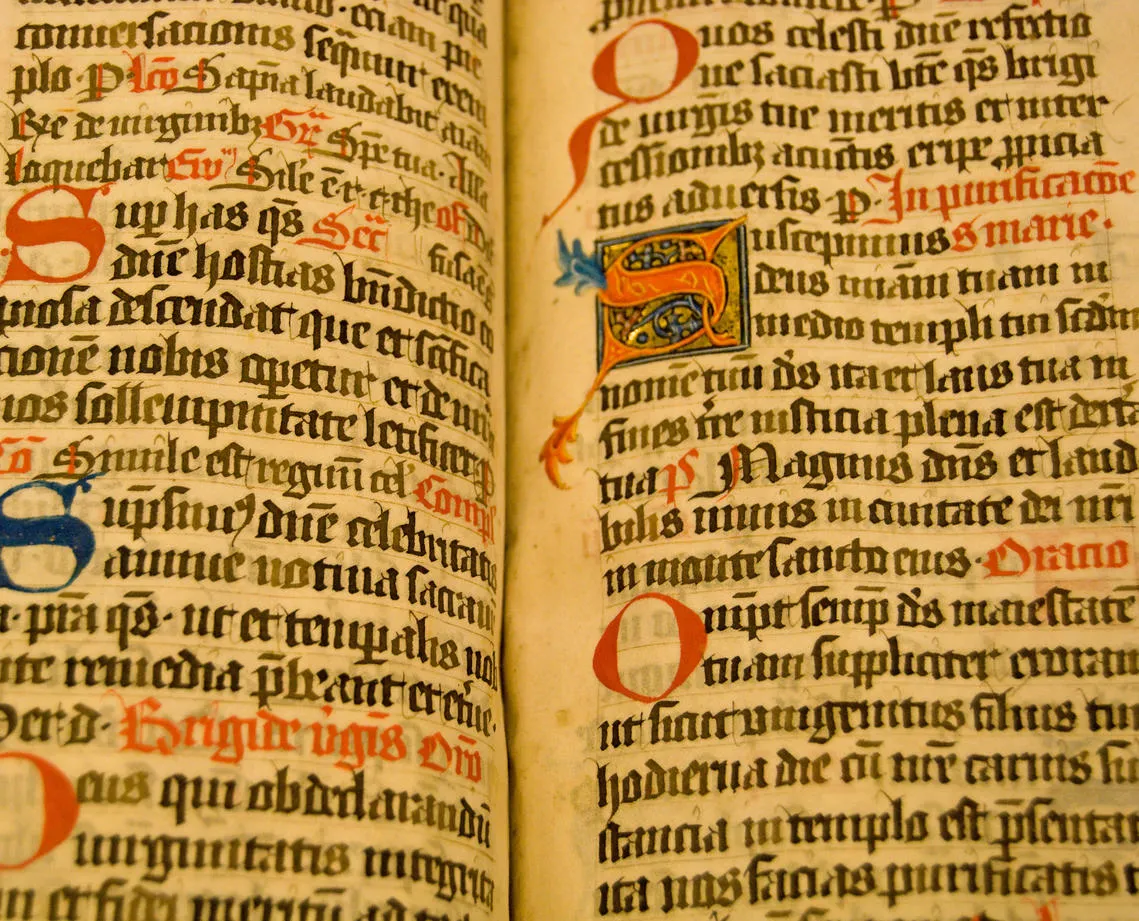 conuersacionis seq̄mur exem
plo · P Lc̄o Sapīa laudabit aīaꝫ
Bre de uirginibꝫ Gr̄ Spē tua · Alla
loquebar Ew̄ Sile ē r̄
Sup has q̄s Secr̄
dn̄e hostias bn̄dictio co
piosa descendat que et sc̄ifica
cionē nobis op̄etur et de
nos sollempnitate letificet P
Co Simile est regnū cel̄ Comp̄
Sūpsimꝰ dn̄e celebritatis
annue uotiua sacram̄
a · pr̄a q̄s · ut et temp̄alis
uite remedia p̄beant et et̄ne ·
Per d · Brigide v̄gīs Or̄o
Deus qui ob declarandū
uirginitatis integrita
Quos celesti dn̄e refectio
ne saciasti bt̄e q̄s brigi
de uirgīs tue meritis et inter
cessionibꝫ a cunctis eripe p̱picia
tus aduersis · P In purificac̄oe
Suscepimus s marie ·
deus mīam tuam in
medio templi tui sc̄dm
nomē tuū ds̄ ita et laus tua in
fines tr̄e iusticia plena est dext̄a
tua Ps̄ Magnus dn̄s et laud
bilis nimis in ciuitate dei nr̄i
in monte sancto eius · Oracio
Om̄pt semp̄ ds̄ maiestatē
tuam suppliciter exoram
ut sicut unigenitus filius tuꝰ
hodierna die cū nr̄e carnis su
stancia in templo est p̄sentat
ita nos facias purificatis